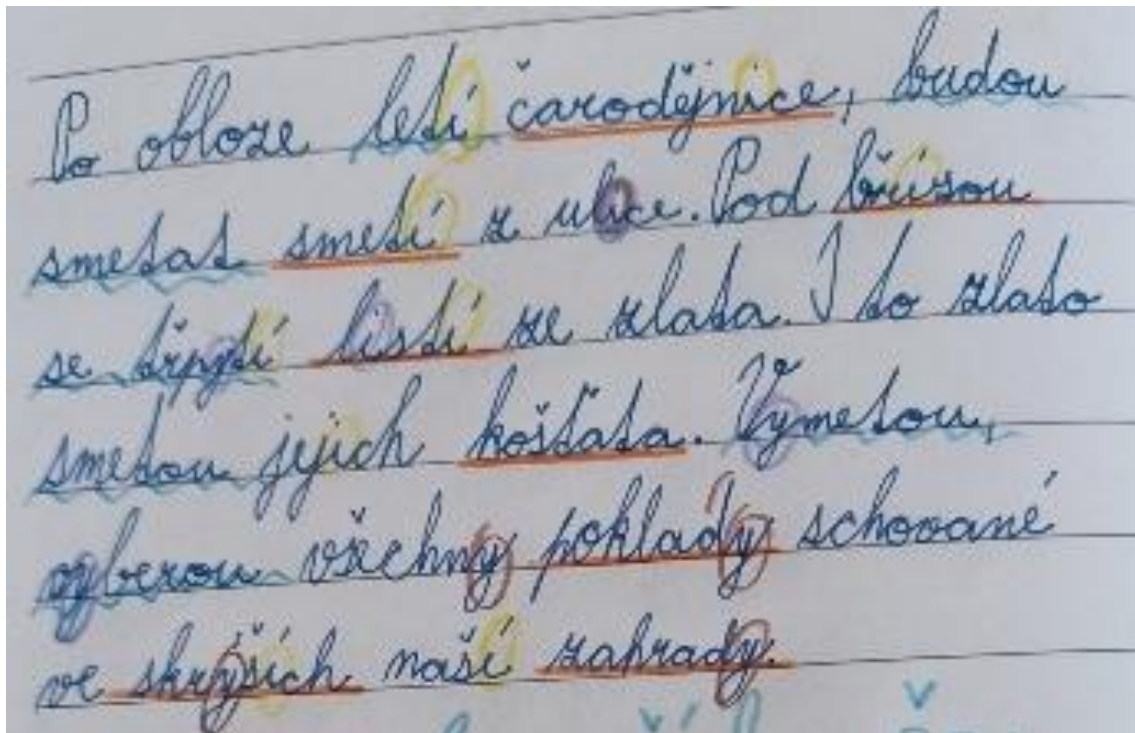 Po obloze letí čarodějnice, budou
smetat smetí z ulice. Pod břízou
se třpytí listí ze zlata. I to zlato
smetou jejich košťata. Vymetou,
vyberou všechny poklady schované
ve skrýších naší zahrady.